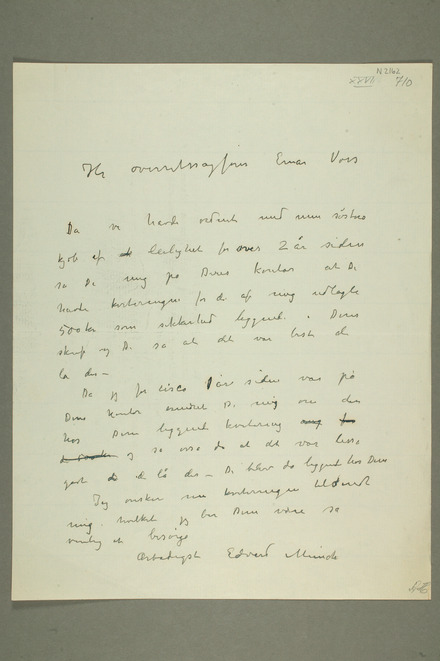 N 2162
XXVI 710
Hr overretssagfører Einar Voss
Da vi havde ordnet med min søsters
kjøb af leilighet for over 2 år siden
sa De mig på Deres kontor at De
havde kvitteringen for de af mig udlagte
500 kr som sikkerhed liggende i Deres
skap og De sa at det var bedst de
lå der –
Da jeg for circa 1 år siden var på
Deres kontor mindet De mig om den
hos Dem liggende kvittering
og sa også da at det var lige
godt de lå der – De blev da liggende hos Dem
Jeg ønsker nu kvitteringen tilsendt
mig hvilket jeg ber Dem være så
venlig at besørge
Ærbødigst Edvard Munch